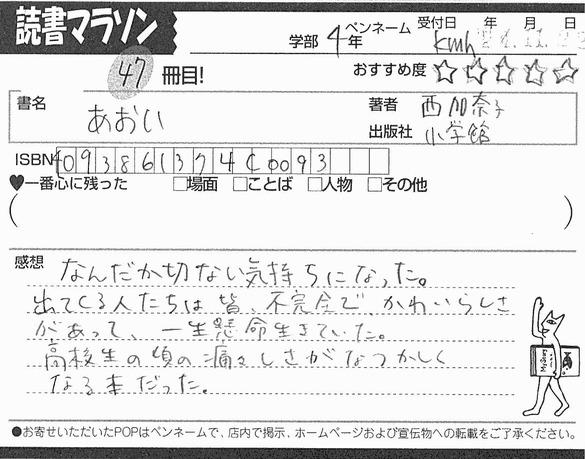 読書マラソン
学部 4年 ペンネーム kmh 受付日 年 月 日
47 冊目! おすすめ度 ☆☆☆☆☆
書名 あおい
著者 西加奈子
出版社 小学館
ISBN
♥一番心に残った □場面 □ことば □人物 □その他
( )
感想 なんだか切ない気持ちになった。
出てくる人たちは皆、不完全で、かわいらしさ
があって、一生懸命生きていた。
高校生の頃の痛々しさがなつかしく
なる本だった。
Mystery
●お寄せいただいたPOPはペンネームで、店内で掲示、ホームページおよび宣伝物への転載をご了承ください。